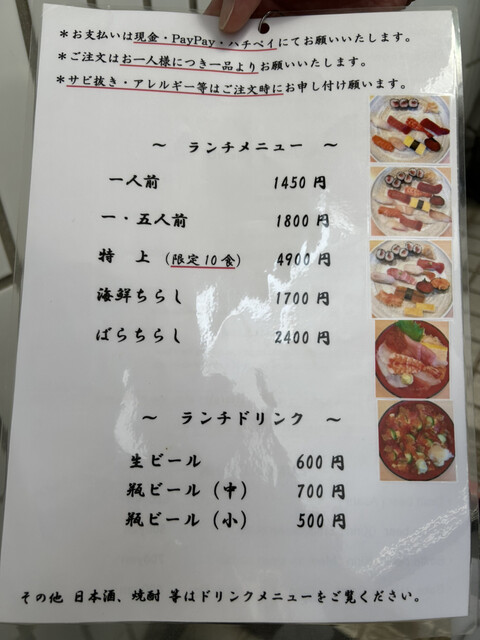 ＊お支払いは現金・PayPay・ハチペイにてお願いいたします。
＊ご注文はお一人様につき一品よりお願いいたします。
＊サビ抜き・アレルギー等はご注文時にお申し付け願います。
～ ランチメニュー ～
一人前 1450円
一・五人前 1800円
特 上 （限定10食） 4900円
海鮮ちらし 1700円
ばらちらし 2400円
～ ランチドリンク ～
生ビール 600円
瓶ビール（中） 700円
瓶ビール（小） 500円
その他 日本酒、焼酎 等はドリンクメニューをご覧ください。